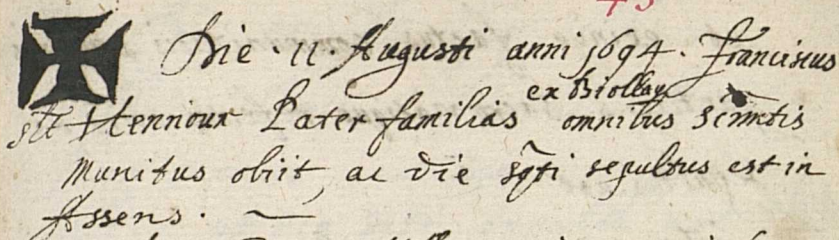 Die · 11 · Augusti anni 1694 · Franciscus
ex Biolley
Hennoux Pater familias omnibus Scrmtis
Munitus obiit, ac die sqti sepultus est in
Assens. —